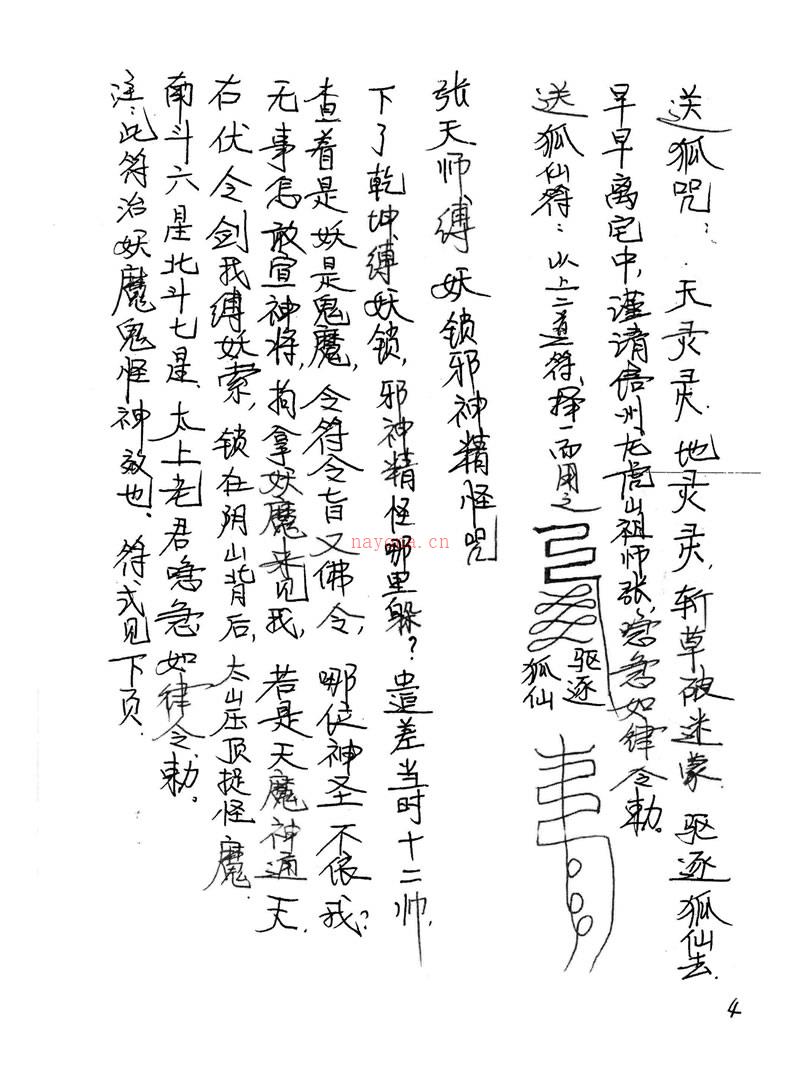 送狐咒：天灵灵.地灵灵,斩草破迷蒙.驱逐狐仙去.
早早离宅中,谨请信州龙虎山祖师张,急急如律令勅。
送狐仙符：以上二道符,择一而用之
驱逐
狐仙
张天师缚妖锁邪神精怪咒
下了乾坤缚妖锁,邪神精怪哪里躲？遣差当时十二帅.
查着是妖是鬼魔,令符令旨又佛令,哪位神圣不依我？
无事怎敢宣神将,拘拿妖魔来见我,若是天魔神通天.
右伏令剑我缚妖索,锁在阴山背后,太山压顶捉怪魔.
南斗六星北斗七星、太上老君急急如律令.勅。
注：此符治妖魔鬼怪神效也、符式见下页.
nayona.cn
4